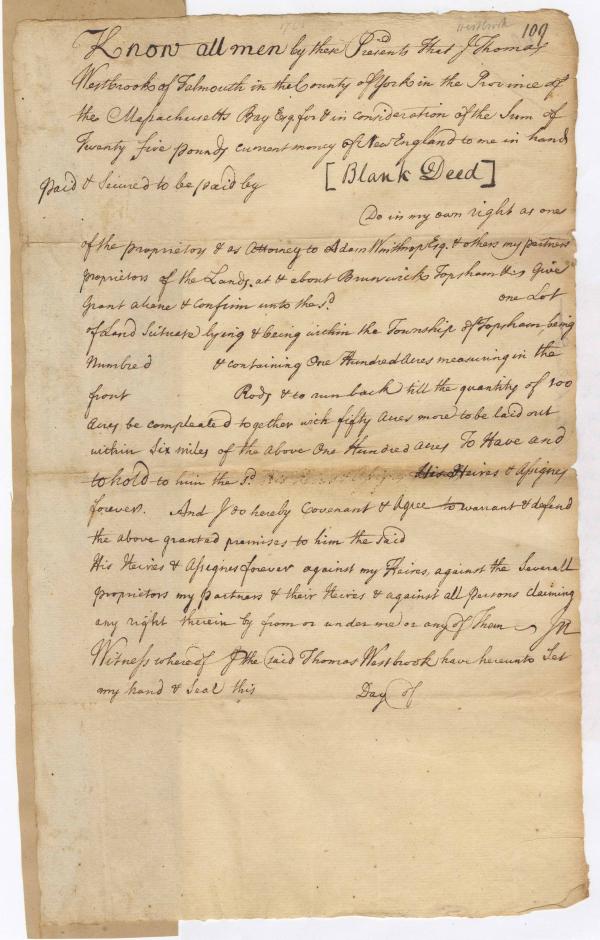 109
Know all men by these Presents That I Thomas
Westbrook of Falmouth in the County of York in the Province of
the Massachusetts Bay Esq for & in consideration of the Sum of
Twenty five pounds current money of New England to me in hand
paid & Secured to be paid by [Blank Deed]
Do in my own right as one
of the proprietors & as Attorney to Adam Winthrop Esq. & others my partners
proprietors of the Lands, at & about Brunswick Topsham &c Give
Grant aliene & Confirm unto the sd. one Lot
of Land Scituate lying & being within the Township of Topsham being
Numbred & containing One Hundred Acres measuring in the
front Rods & to run back till the quantity of 100
Acres be compleated together with fifty Acres more to be laid out
within Six miles of the above One Hundred acres To Have and
to hold to him the sd. His Heires & Assignes
forever. And I do hereby Covenant & Agree to warrant & defend
the above granted premises to him the said
His Heires & Assignes forever against my Heires, against the Severall
proprietors my partners & their Heires & against all Persons claiming
any right therein by from or under me or any of Them In
Witness whereof I the said Thomas Westbrook have hereunto Set
my hand & Seal this Day of